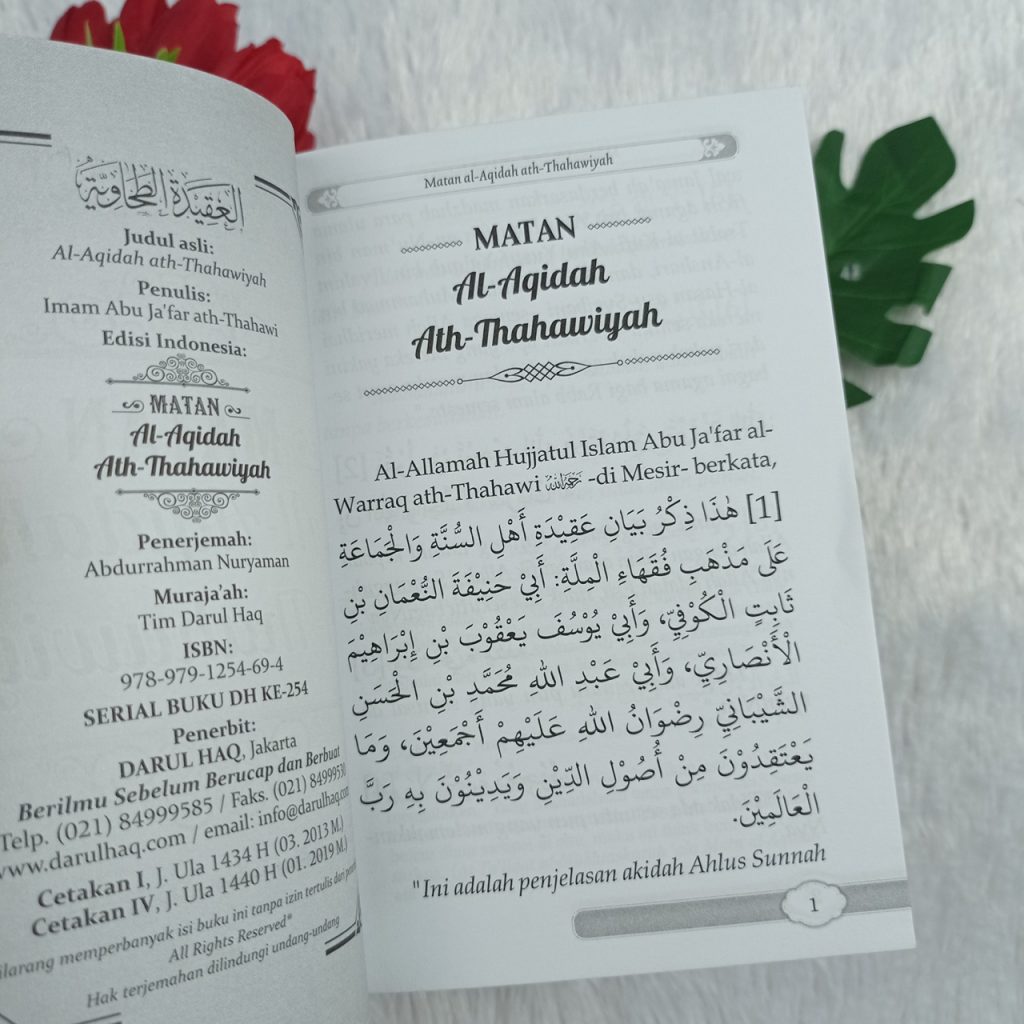 العقيدة الطحاوية
Judul asli:
Al-Aqidah ath-Thahawiyah
Penulis:
Imam Abu Ja'far ath-Thahawi
Edisi Indonesia:
MATAN
Al-Aqidah
Ath-Thahawiyah
Penerjemah:
Abdurrahman Nuryaman
Muraja'ah:
Tim Darul Haq
ISBN:
978-979-1254-69-4
SERIAL BUKU DH KE-254
Penerbit:
DARUL HAQ, Jakarta
Berilmu Sebelum Berucap dan Berbuat
Telp. (021) 84999585 / Faks. (021) 84999530
www.darulhaq.com / email: info@darulhaq.com
Cetakan I, J. Ula 1434 H (03. 2013 M.)
Cetakan IV, J. Ula 1440 H (01. 2019 M.)
memperbanyak isi buku ini tanpa izin tertulis dari
All Rights Reserved"
Hak terjemahan dilindungi undang-undang
Matan al-Aqidah ath-Thahawiyah
MATAN
Al-Aqidah
Ath-Thahawiyah
Al-Allamah Hujjatul Islam Abu Ja'far al-
Warraq ath-Thahawi رحمه الله -di Mesir- berkata,
[1] هٰذَا ذِكْرُ بَيَانِ عَقِيْدَةِ أَهْلِ السُّنَّةِ وَالْجَمَاعَةِ
عَلَى مَذْهَبِ فُقَهَاءِ الْمِلَّةِ: أَبِيْ حَنِيْفَةَ النُّعْمَانِ بْنِ
ثَابِتٍ الْكُوْفِيِّ، وَأَبِيْ يُوْسُفَ يَعْقُوْبَ بْنِ إِبْرَاهِيْمَ
الْأَنْصَارِيِّ، وَأَبِيْ عَبْدِ اللهِ مُحَمَّدِ بْنِ الْحَسَنِ
الشَّيْبَانِيِّ رِضْوَانُ اللهِ عَلَيْهِمْ أَجْمَعِيْنَ، وَمَا
يَعْتَقِدُوْنَ مِنْ أُصُوْلِ الدِّيْنِ وَيَدِيْنُوْنَ بِهِ رَبَّ
الْعَالَمِيْنَ.
"Ini adalah penjelasan akidah Ahlus Sunnah
1